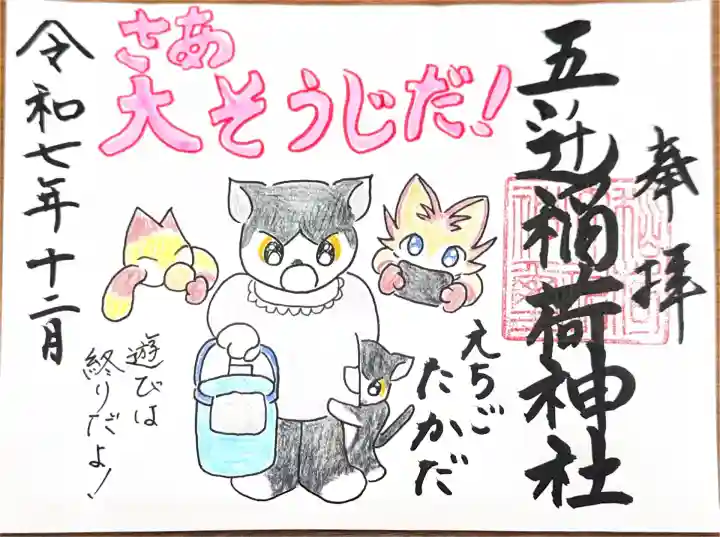 奉拝
五辻稲荷神社
さあ
大そうじだ!
えちご
たかだ
遊びは
終りだよ!
令和七年十二月